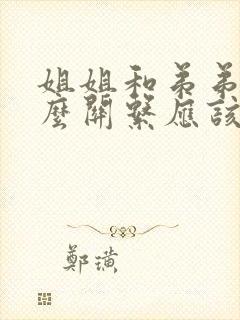 姐姐和弟弟
麼關繫應該
鄭璜